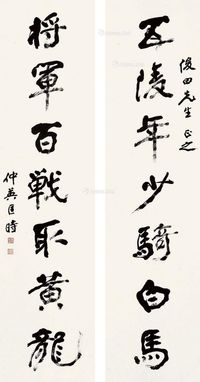 五陵年少騎白馬
俊田先生正之
將軍百戰取黃龍
仲英匡時